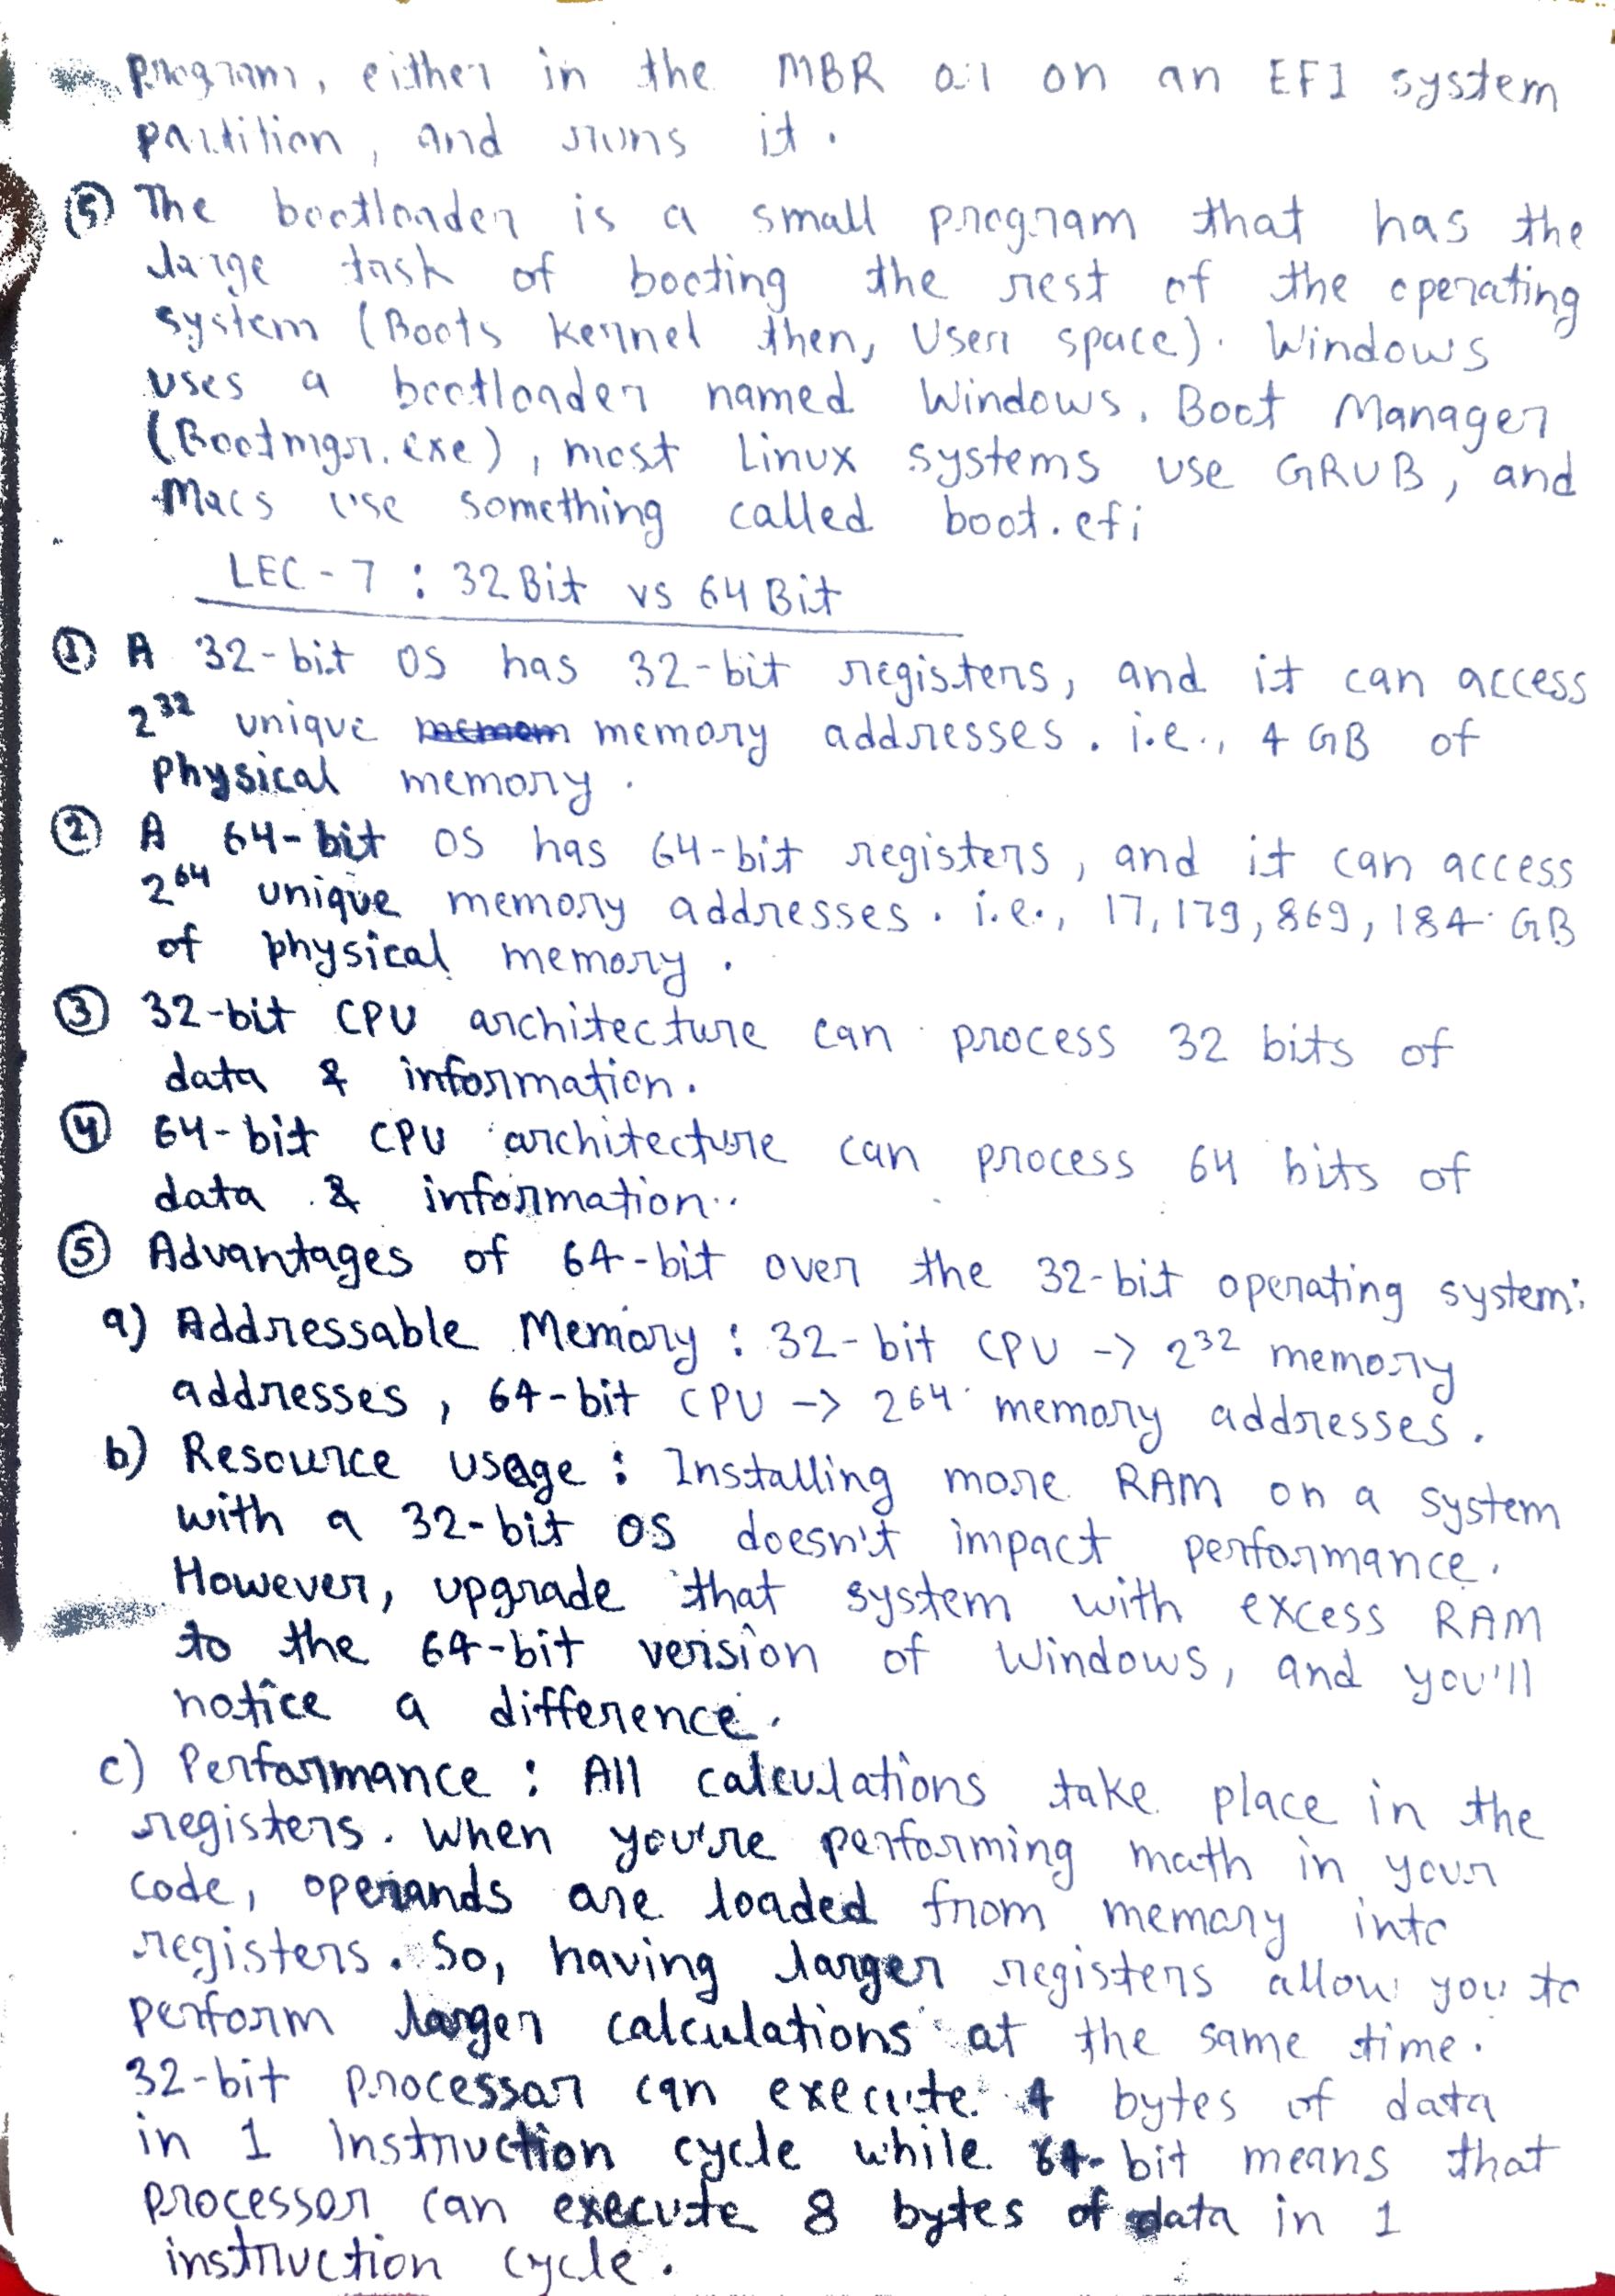 program, either in the MBR or on an EFI system
partition, and runs it.
⑤ The bootloader is a small program that has the
large task of booting the rest of the operating
system (Boots Kernel then, User space). Windows
uses a bootloader named Windows. Boot Manager
(Bootmgr.exe), most Linux systems use GRUB, and
Macs use something called boot.efi
LEC-7 : 32 Bit vs 64 Bit
① A 32-bit OS has 32-bit registers, and it can access
2³² unique memory addresses. i.e., 4 GB of
physical memory.
② A 64-bit OS has 64-bit registers, and it can access
2⁶⁴ unique memory addresses. i.e., 17,179,869,184 GB
of physical memory.
③ 32-bit CPU architecture can process 32 bits of
data & information.
④ 64-bit CPU architecture can process 64 bits of
data & information.
⑤ Advantages of 64-bit over the 32-bit operating system:
a) Addressable Memory : 32-bit CPU -> 2³² memory
addresses, 64-bit CPU -> 2⁶⁴ memory addresses.
b) Resource usage : Installing more RAM on a system
with a 32-bit OS doesn't impact performance.
However, upgrade that system with excess RAM
to the 64-bit version of Windows, and you'll
notice a difference.
c) Performance : All calculations take place in the
registers. When you're performing math in your
code, operands are loaded from memory into
registers. So, having larger registers allow you to
perform larger calculations at the same time.
32-bit processor can execute 4 bytes of data
in 1 Instruction cycle while 64-bit means that
processor can execute 8 bytes of data in 1
instruction cycle.